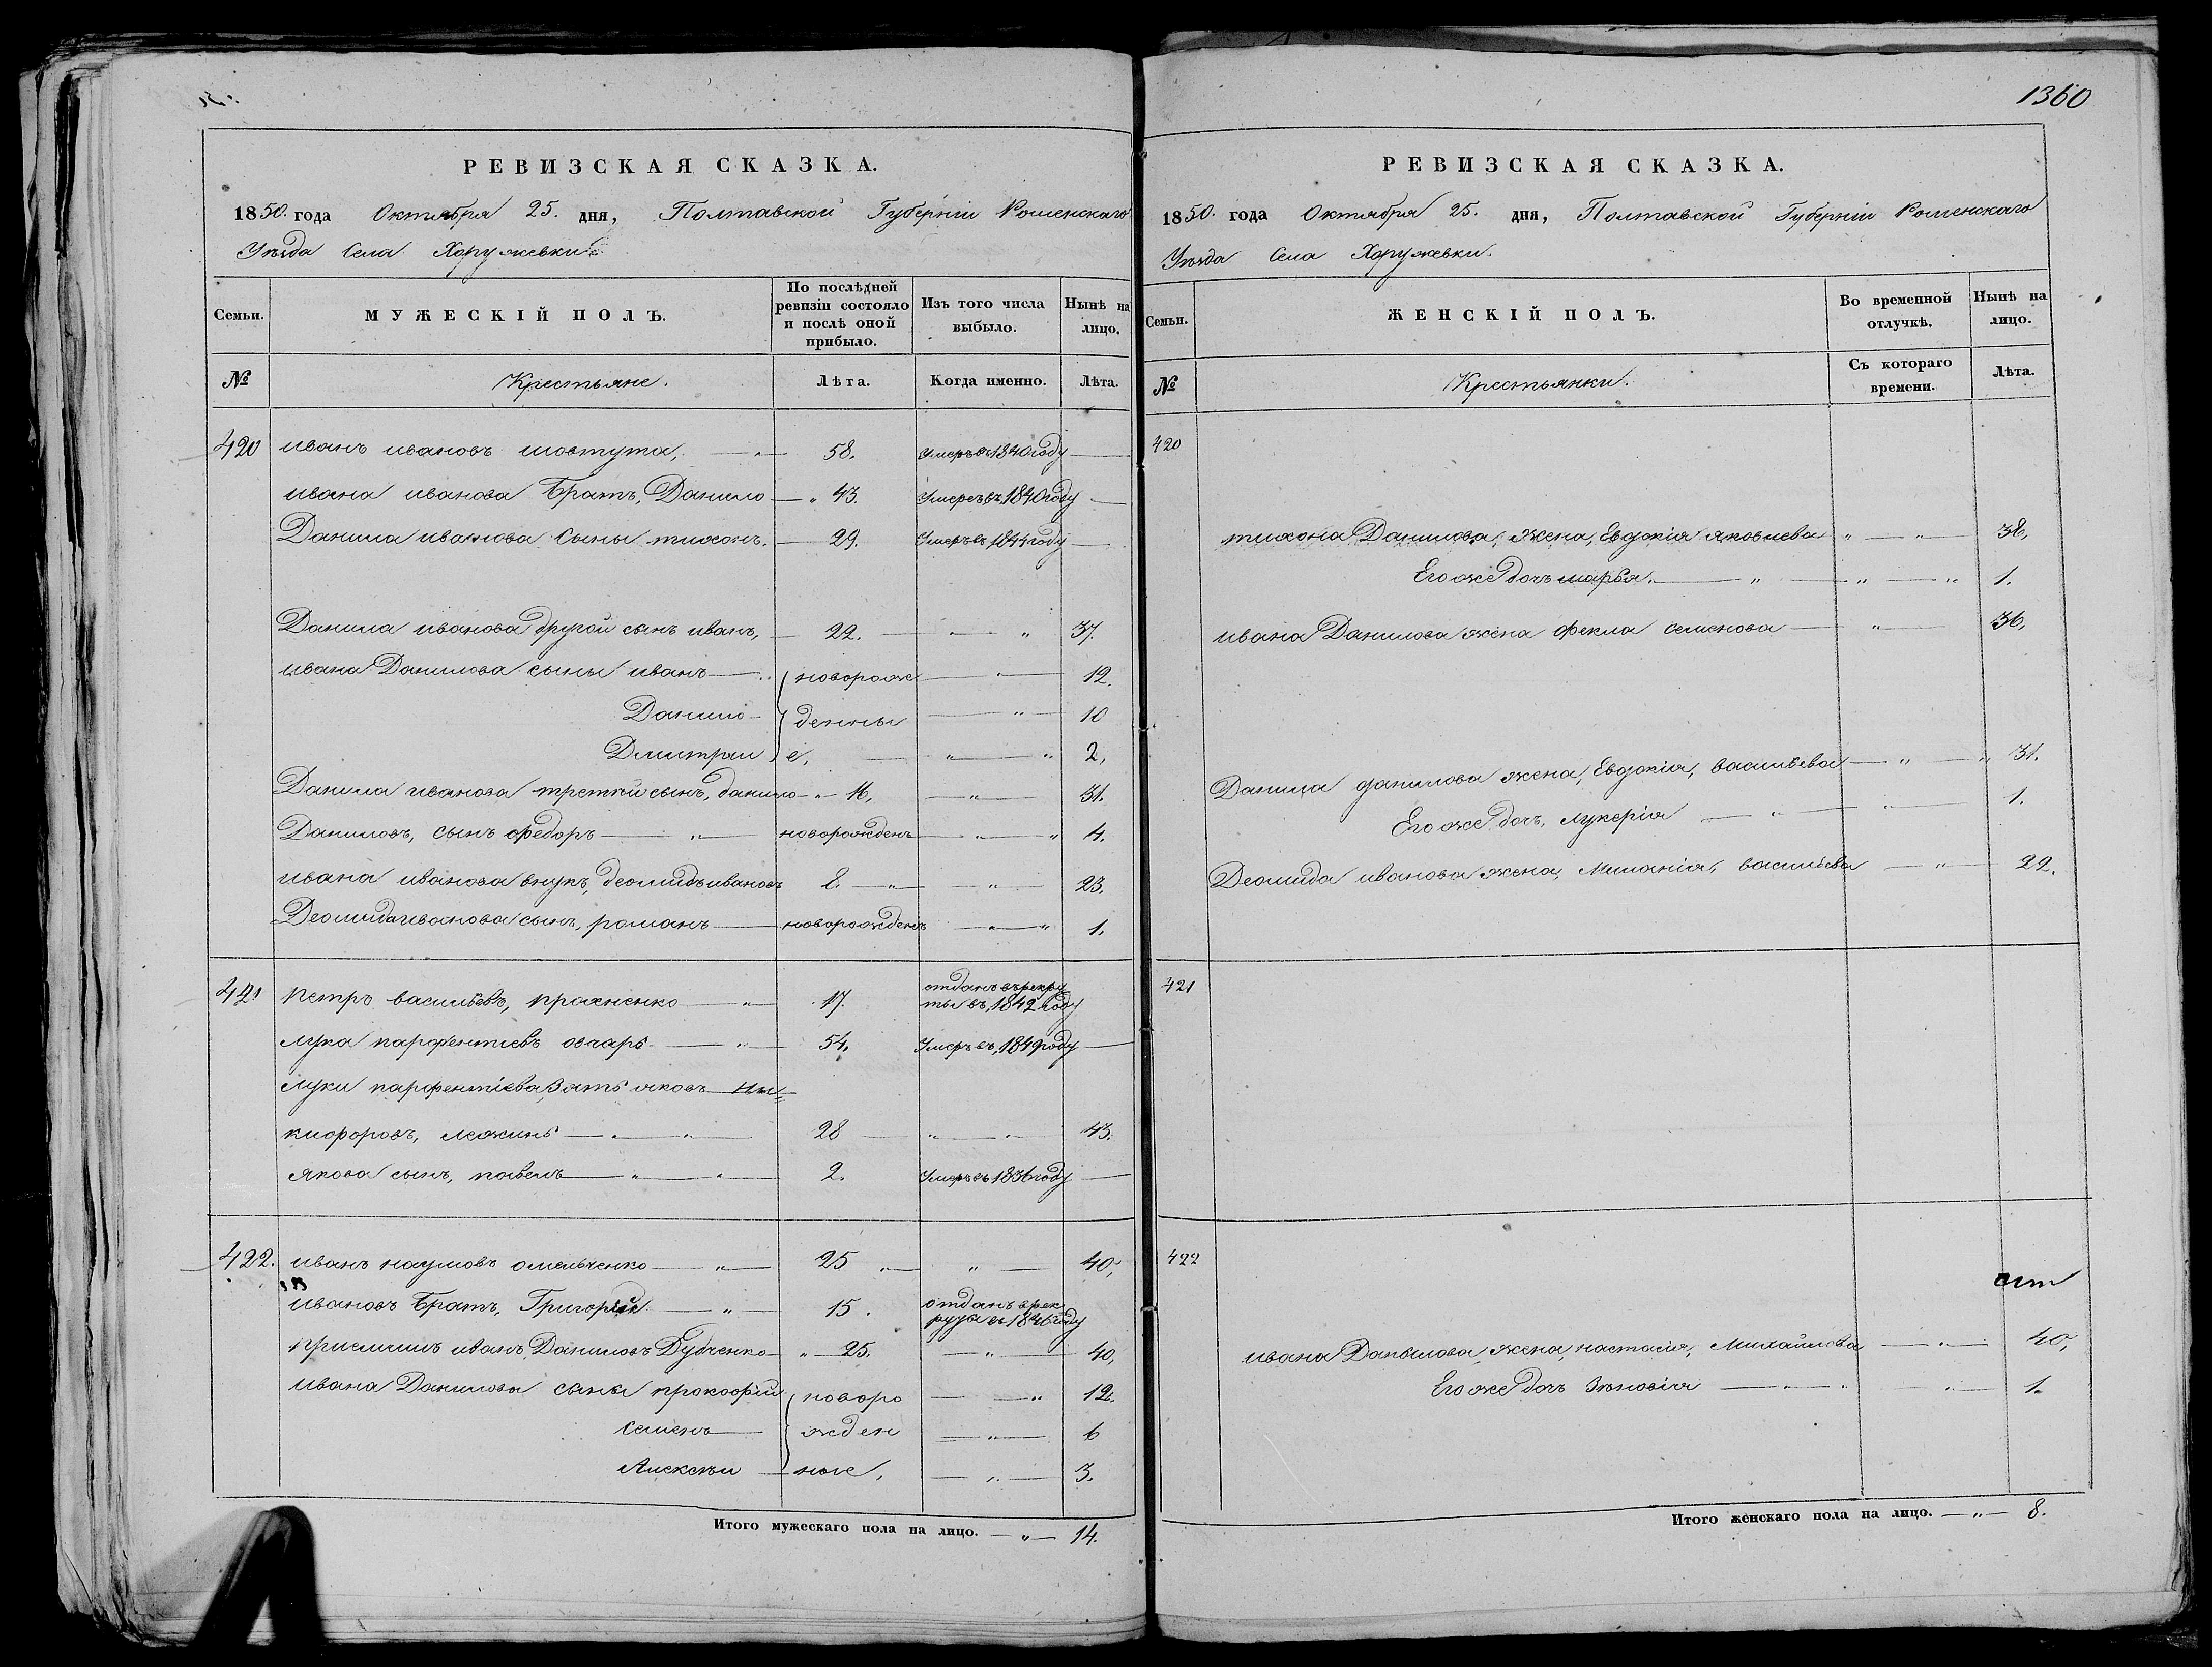 РЕВИЗСКАЯ СКАЗКА.
1850. года Октября 25. дня, Полтавской Губерніи Роменскаго
Уѣзда Села Хоружевки
Семьи. МУЖЕСКІЙ ПОЛЪ. По послѣдней ревизіи состояло и послѣ оной прибыло. Изъ того числа выбыло. Нынѣ на лицо.
№ Крестьяне. Лѣта. Когда именно. Лѣта.
420 иванъ ивановъ шовтута, 58. умеръ въ 1840 году
ивана иванова Братъ, Данило 43. Умеръ въ 1840 году
Данила иванова Сыны тихонъ. 29. Умеръ въ 1844 году
Данила иванова другой сынъ иванъ, 22. " 37.
ивана Данилова сыны иванъ новорож " 12.
Данило денны " 10
Дмитрии е, " " 2,
Данила иванова третий сынъ, данило 16, " 31.
Даниловъ, сынъ федоръ новорожденъ " 4.
ивана иванова внукъ, деомидъ ивановъ 8. " 23.
Деомида иванова сынъ, романъ новорожденъ " 1.
421 Петръ васильевъ, прахненко 17. отданъ въ рекру
ты въ, 1842 году
лука парфентиевъ овчарь 54. Умеръ въ, 1849 году
луки парфентіева, Зять яковъ Ни=
кифоровъ, лежинь 28 " 43.
якова сынъ, павелъ 2. Умеръ въ 1836 году
422. иванъ наумовъ омельченко 25 " 40,
ивановъ Братъ, Григорій 15. отданъ в рек
рута въ 1846 году
приемишъ иванъ Даниловъ Дубченко 25. " 40,
ивана Данилова сыны прокофий новоро " 12.
семенъ жден " 6
Алексѣи ные, " 3.
Итого мужескаго пола на лицо. — " — 14.
1360
РЕВИЗСКАЯ СКАЗКА.
1850. года Октября 25. дня, Полтавской Губерніи Роменскаго
Уѣзда Села Хоружевки.
Семьи. ЖЕНСКІЙ ПОЛЪ. Во временной отлучкѣ. Нынѣ на лицо.
№ Крестьянки. Съ котораго времени. Лѣта.
420
тихона Данилова, жена, Евдокія яковлева " " 38,
Его же дочь марья. " " 1.
ивана Данилова жена фекла семенова " 36,
Данила данилова жена, Евдокія, васильева " " 31.
Его же дочь, лукерія " 1.
Деомида иванова жена, Миланія, васильева " 22.
421
422
ивана Данилова, жена, настасія, Михайлова " 40,
Его же дочь Зѣновія " 1.
Итого женскаго пола на лицо. — " — 8.